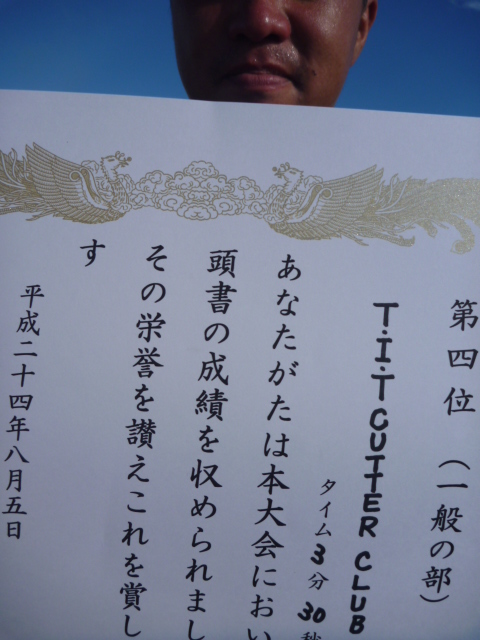 第四位（一般の部）
T.I.T CUTTER CLUB
タイム3分30秒
あなたがたは本大会におい
頭書の成績を収められまし
その栄誉を讃えこれを賞し
す
平成二十四年八月五日